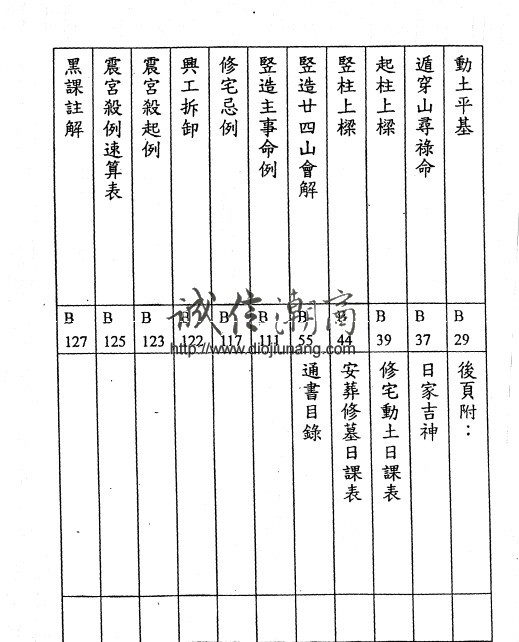 動土平基
遁穿山尋祿命
起柱上樑
竪柱上樑
竪造廿四山會解
竪造主事命例
修宅忌例
興工拆卸
震宮殺起例
震宮殺例速算表
黑課註解
B 29
B 37
B 39
B 44
B 55
B 111
B 117
B 122
B 123
B 125
B 127
後頁附：
日家吉神
修宅動土日課表
安葬修墓日課表
通書目錄
誠信潮商
http://www.diojiunang.com